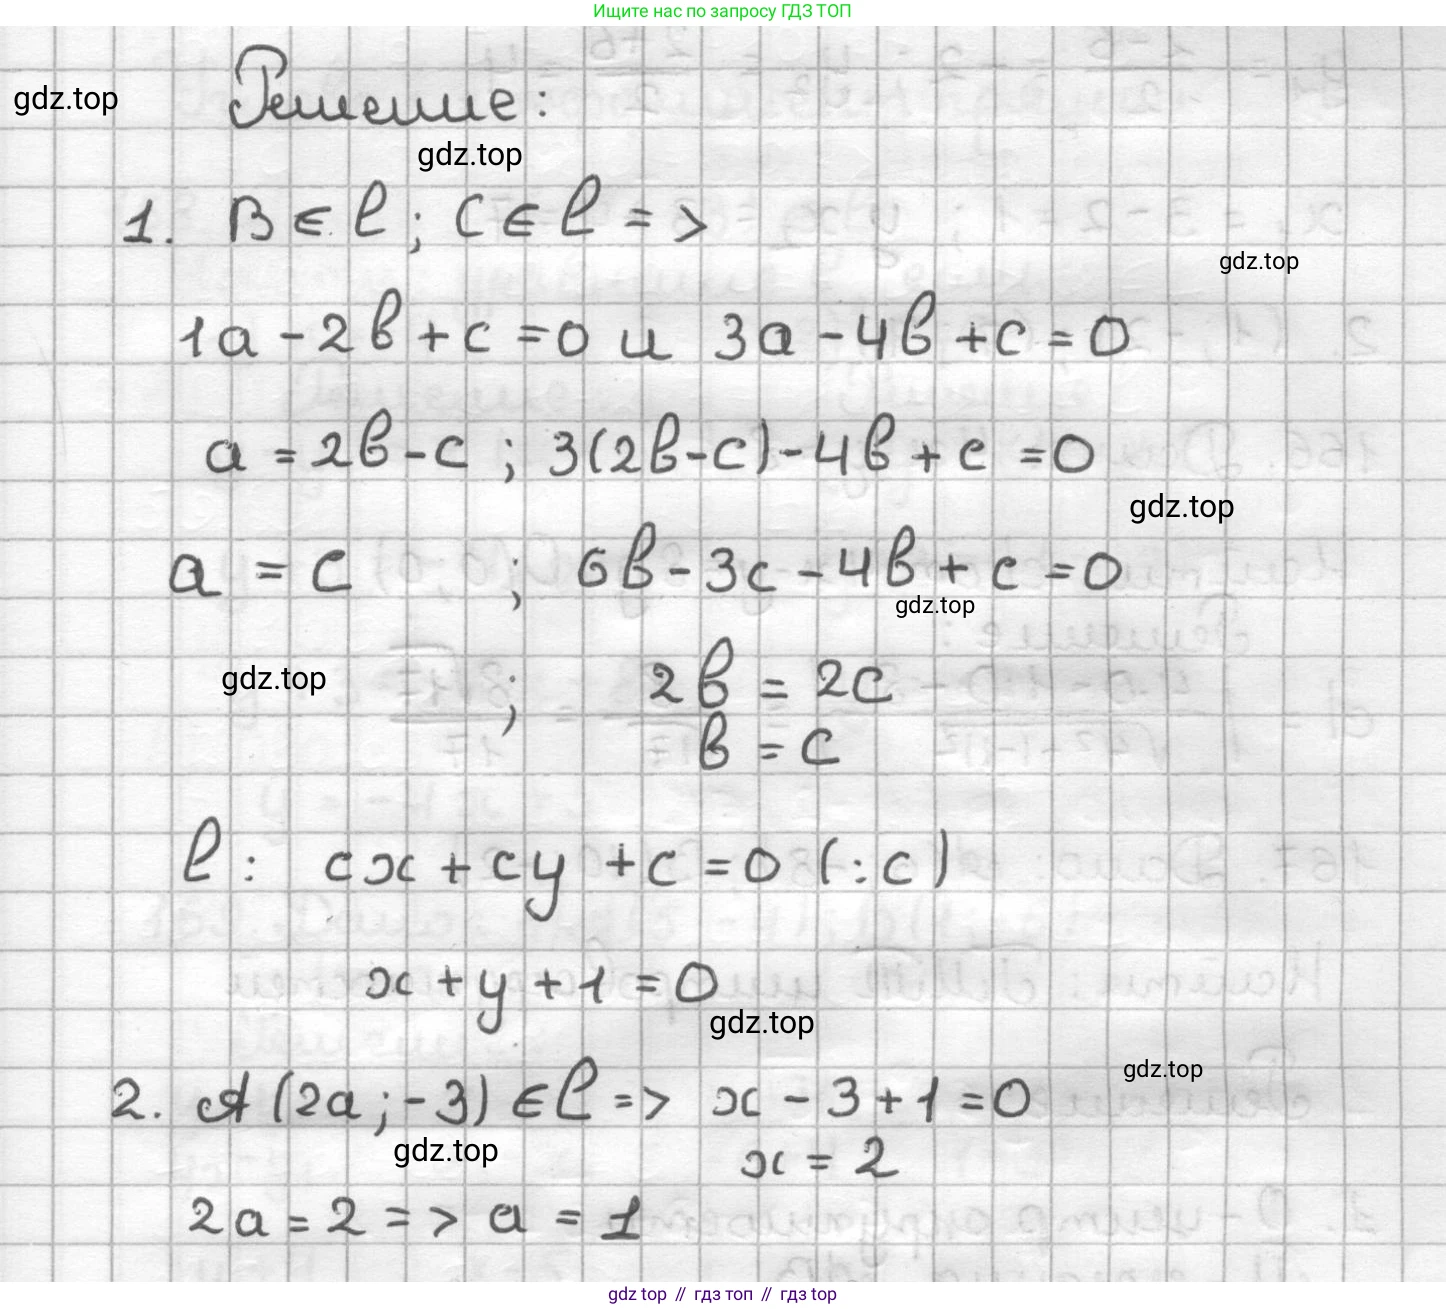 Ищите нас по запросу ГДЗ ТОП
Решение:
gdz.top
gdz.top
1. B ∈ l; C ∈ l =>
gdz.top
1a - 2в + c = 0 и 3a - 4в + c = 0
a = 2в - c ; 3(2в - c) - 4в + c = 0
gdz.top
a = c ; 6в - 3c - 4в + c = 0
gdz.top
gdz.top
; 2в = 2c
в = c
l: cx + cy + c = 0 (:c)
x + y + 1 = 0
gdz.top
gdz.top
2. A (2a; -3) ∈ l => x - 3 + 1 = 0
gdz.top
x = 2
2a = 2 => a = 1
gdz top // гдз топ // gdz top